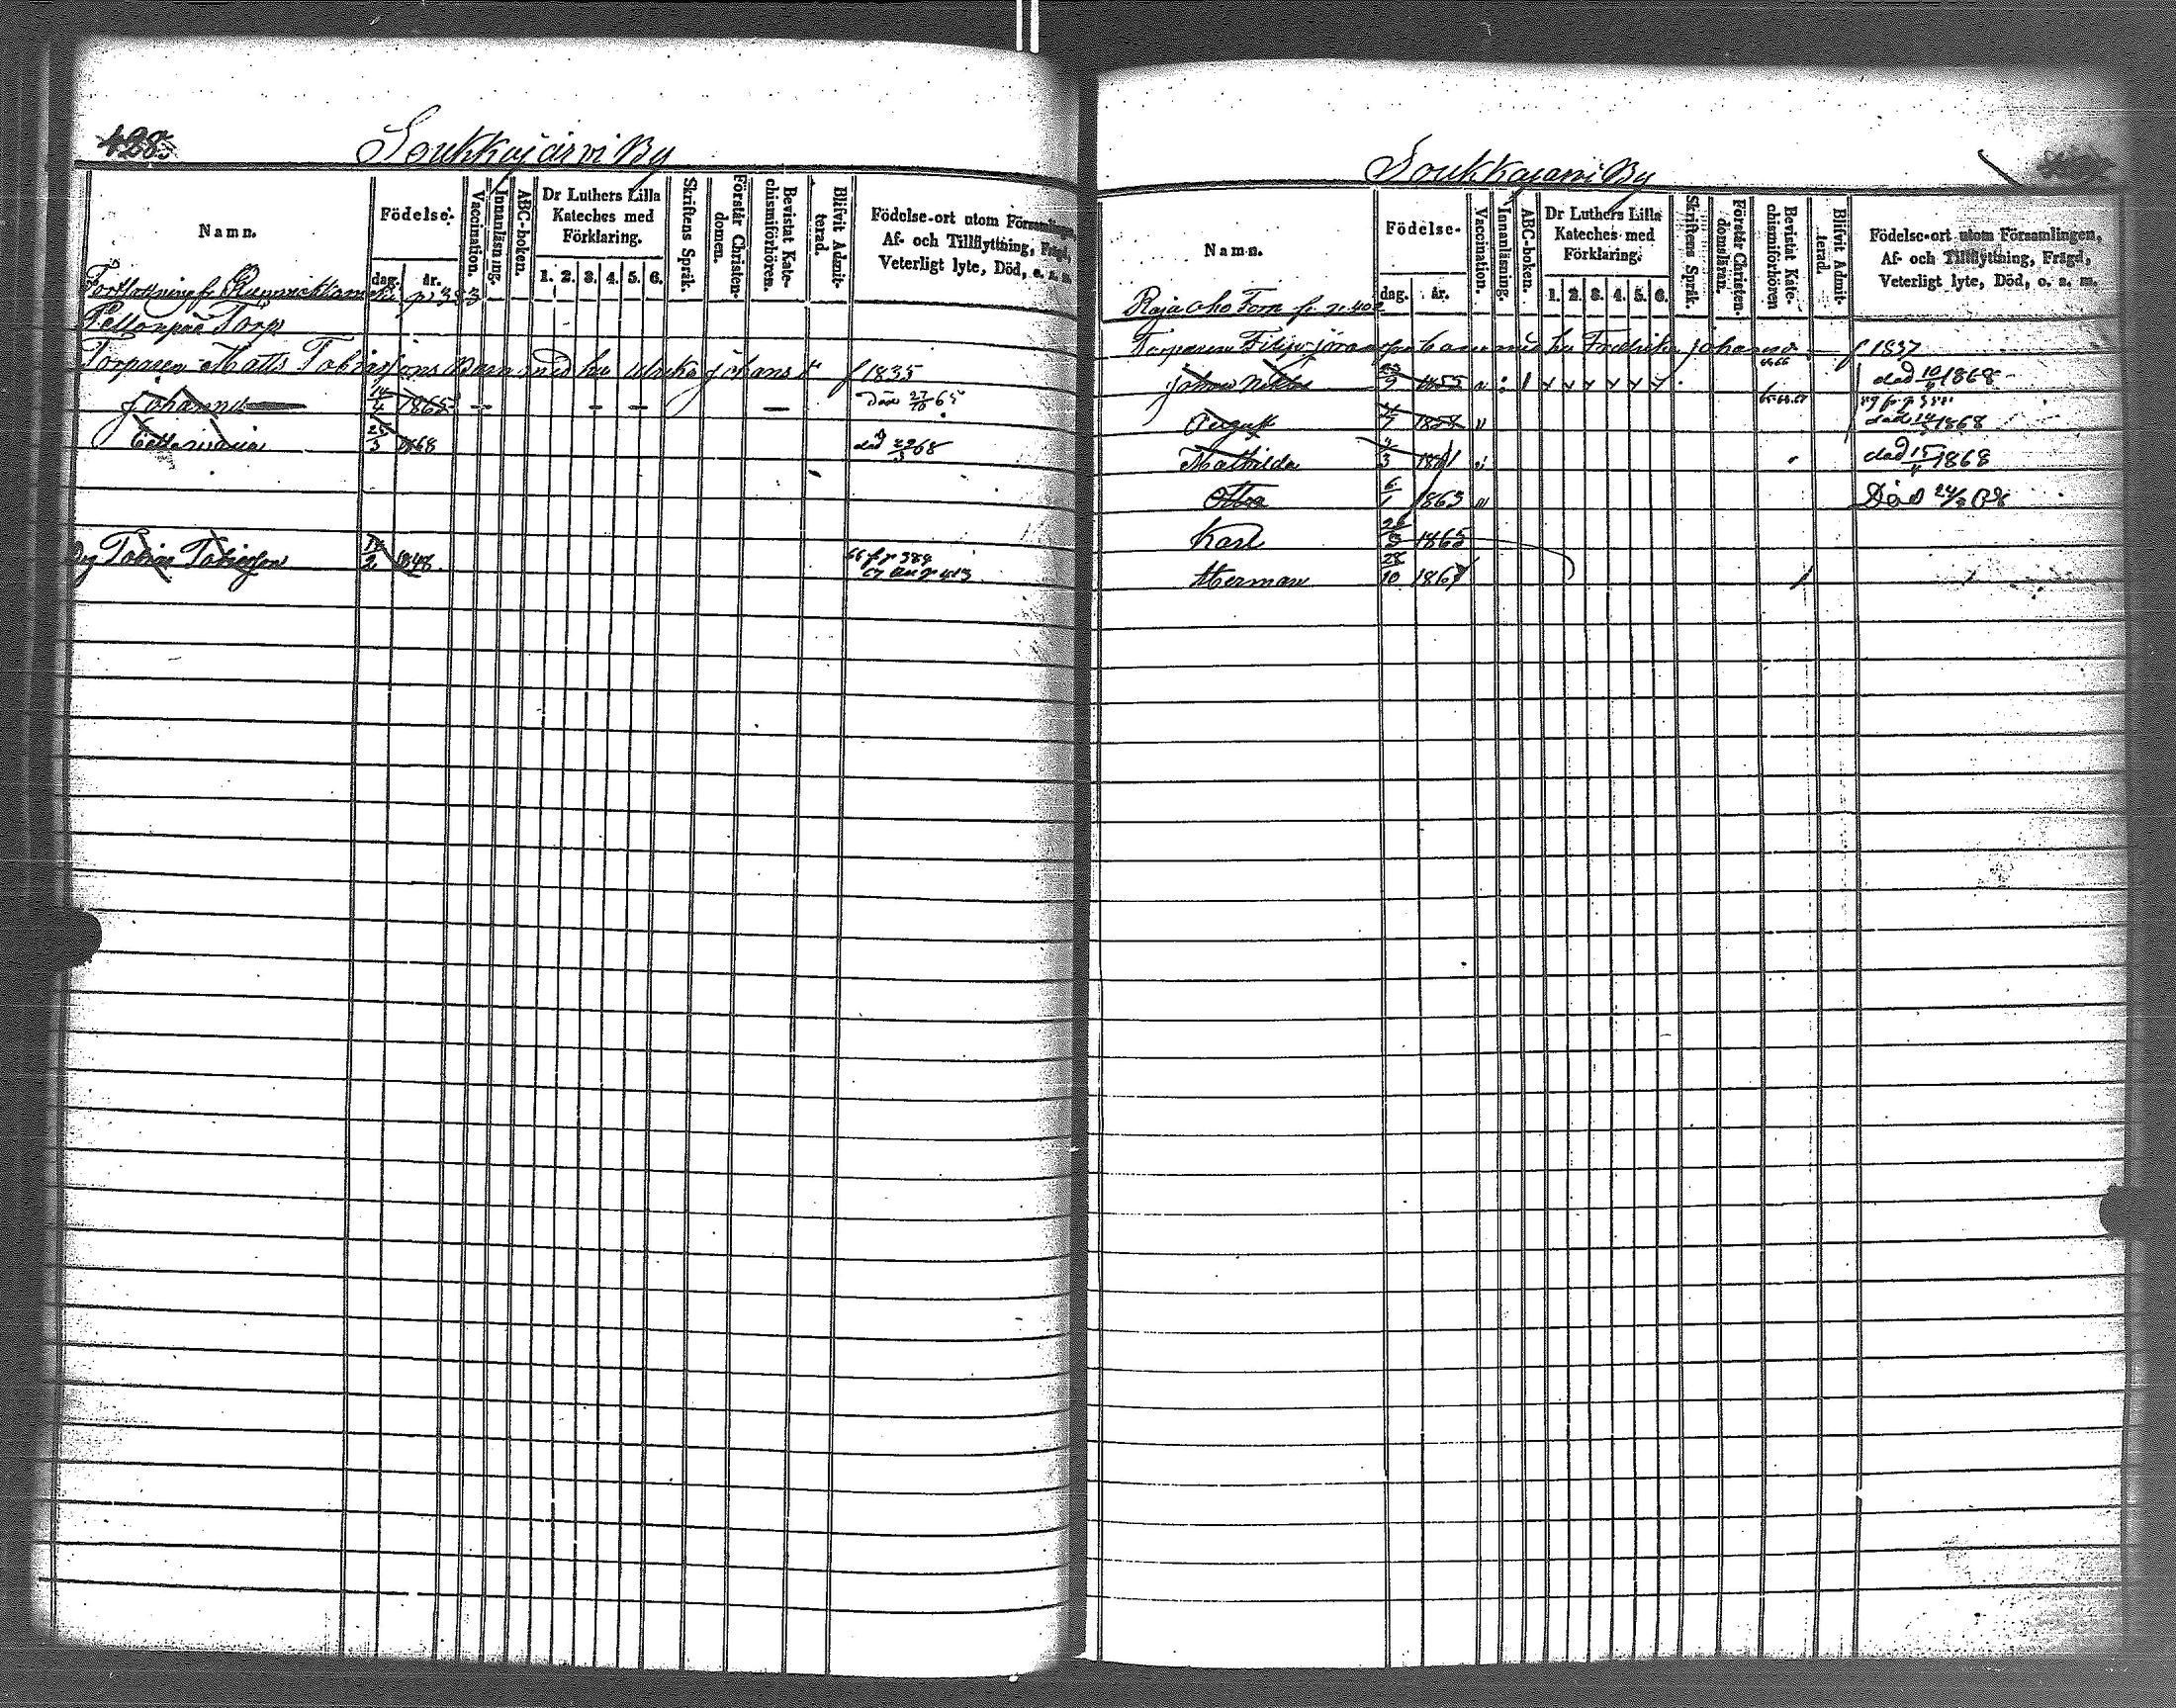 428
Soukkajärvi By
Namn.
Födelse-
dag. år.
Vaccination.
Innanläsning.
ABC-boken.
Dr Luthers Lilla
Kateches med
Förklaring.
1. 2. 3. 4. 5. 6.
Skriftens Språk.
Förstår Christen-
domen.
Bevistat Kate-
chismiförhören.
Blifvit Admit-
terad.
Födelse-ort utom Församlingen,
Af- och Tillflyttning, Frägd,
Veterligt lyte, Död, o. s. m.
Fortsättning fr
Pellonpää Torp
Torparen Matts Tobiasfons Barn med hu Ulrika Johans dr f 1835
Johanna 14/4 1865 död 27/10 65
1868 död 68
Dg Tobias Tobiasson 2 1848 66 fr p 389
p 413
Soukkajarvi By
Namn.
Födelse-
dag. år.
Vaccination.
Innanläsning.
ABC-boken.
Dr Luthers Lilla
Kateches med
Förklaring.
1. 2. 3. 4. 5. 6.
Skriftens Språk.
Förstår Christen-
domsläran.
Bevistat Kate-
chismiförhören
Blifvit Admit-
terad.
Födelse-ort utom Församlingen,
Af- och Tillflyttning, Frägd,
Veterligt lyte, Död, o. s. m.
Raja aho Torp fr p. 402
Torparen Filip Barn med hu Fredrika Johans dr f 1837
Johan Niklas 9 1855 död 10/ 1868
August 1858 död 1868
Mathilda 3 1861 död 15/ 1868
Otto 6/1 1863 Död
Karl 26/ 1865
Herman 28/10 1867